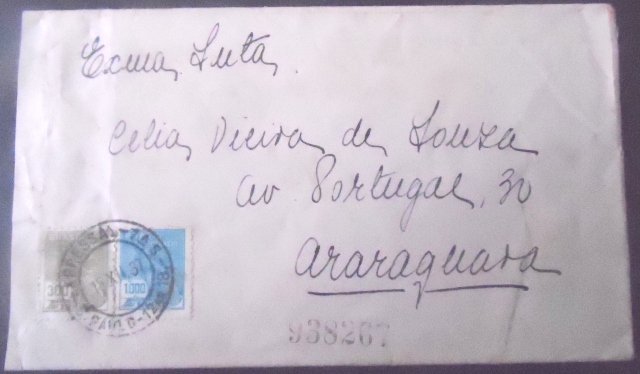 Exma Snta
Celia Vieira de Souza
av Portugal, 30
Araraquara
300
1000
938267